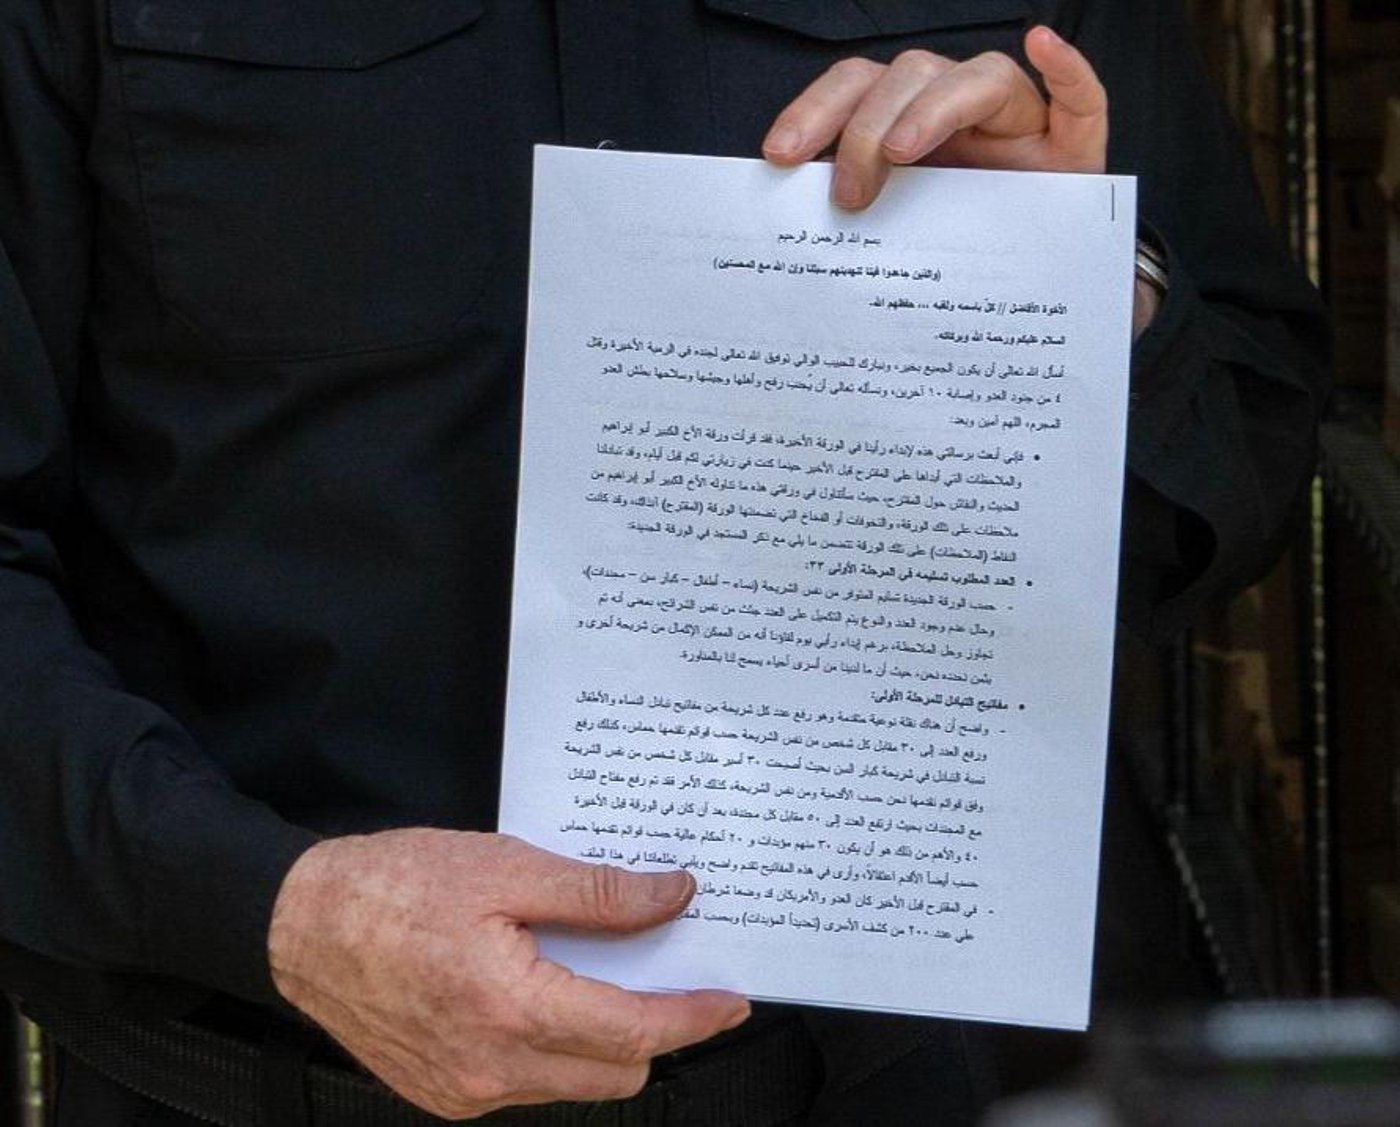 بسم الله الرحمن الرحيم
(والذين جاهدوا فينا لنهدينهم سبلنا وإن الله مع المحسنين)
الأخوة الأفاضل // كلٌ باسمه ولقبه ... حفظهم الله.
السلام عليكم ورحمة الله وبركاته.
أسأل الله تعالى أن يكون الجميع بخير، ونبارك للحبيب الوالي توفيق الله تعالى لجنده في الرمية الأخيرة وقتل
٤ من جنود العدو وإصابة ١٠ آخرين، ونسأله تعالى أن يجنب رفح وأهلها وجيشها وسلاحها بطش العدو
المجرم، اللهم آمين وبعد:
• فإني أبعث برسالتي هذه لإبداء رأينا في الورقة الأخيرة، فقد قرأت ورقة الأخ الكبير أبو إبراهيم
والملاحظات التي أبداها على المقترح قبل الأخير حينما كنت في زيارتي لكم قبل أيام، وقد تبادلنا
الحديث والنقاش حول المقترح، حيث سأتناول في ورقتي هذه ما تناوله الأخ الكبير أبو إبراهيم من
ملاحظات على تلك الورقة، والتخوفات أو الفخاخ التي تضمنتها الورقة (المقترح) آنذاك، وقد كانت
النقاط (الملاحظات) على تلك الورقة تتضمن ما يلي مع ذكر المستجد في الورقة الجديدة:
• العدد المطلوب تسليمه في المرحلة الأولى ٣٣:
- حسب الورقة الجديدة تسليم المتوفر من نفس الشريحة (نساء – أطفال – كبار سن – مجندات)،
وحال عدم وجود العدد والنوع يتم التكميل على العدد جثث من نفس الشرائح، بمعنى أنه تم
تجاوز وحل الملاحظة، برغم إبداء رأيي يوم لقاؤنا أنه من الممكن الإكمال من شريحة أخرى و
بثمن نحدده نحن، حيث أن ما لدينا من أسرى أحياء يسمح لنا بالمناورة.
• مفاتيح التبادل للمرحلة الأولى:
- واضح أن هناك نقلة نوعية متقدمة وهو رفع عدد كل شريحة من مفاتيح تبادل النساء والأطفال
ورفع العدد إلى ٣٠ مقابل كل شخص من نفس الشريحة حسب قوائم تقدمها حماس، كذلك رفع
نسبة التبادل في شريحة كبار السن بحيث أصبحت ٣٠ أسير مقابل كل شخص من نفس الشريحة
وفق قوائم نقدمها نحن حسب الأقدمية ومن نفس الشريحة، كذلك الأمر فقد تم رفع مفتاح التبادل
مع المجندات بحيث ارتفع العدد إلى ٥٠ مقابل كل مجندة، بعد أن كان في الورقة قبل الأخيرة
٤٠ والأهم من ذلك هو أن يكون ٣٠ منهم مؤبدات و ٢٠ أحكام عالية حسب قوائم تقدمها حماس
حسب أيضاً الأقدم اعتقالاً، وأرى في هذه المفاتيح تقدم واضح ويلبي تطلعاتنا في هذا الملف.
- في المقترح قبل الأخير كان العدو والأمريكان قد وضعا شرطان
على عدد ٢٠٠ من كشف الأسرى (تحديداً المؤبدات) وبحسب